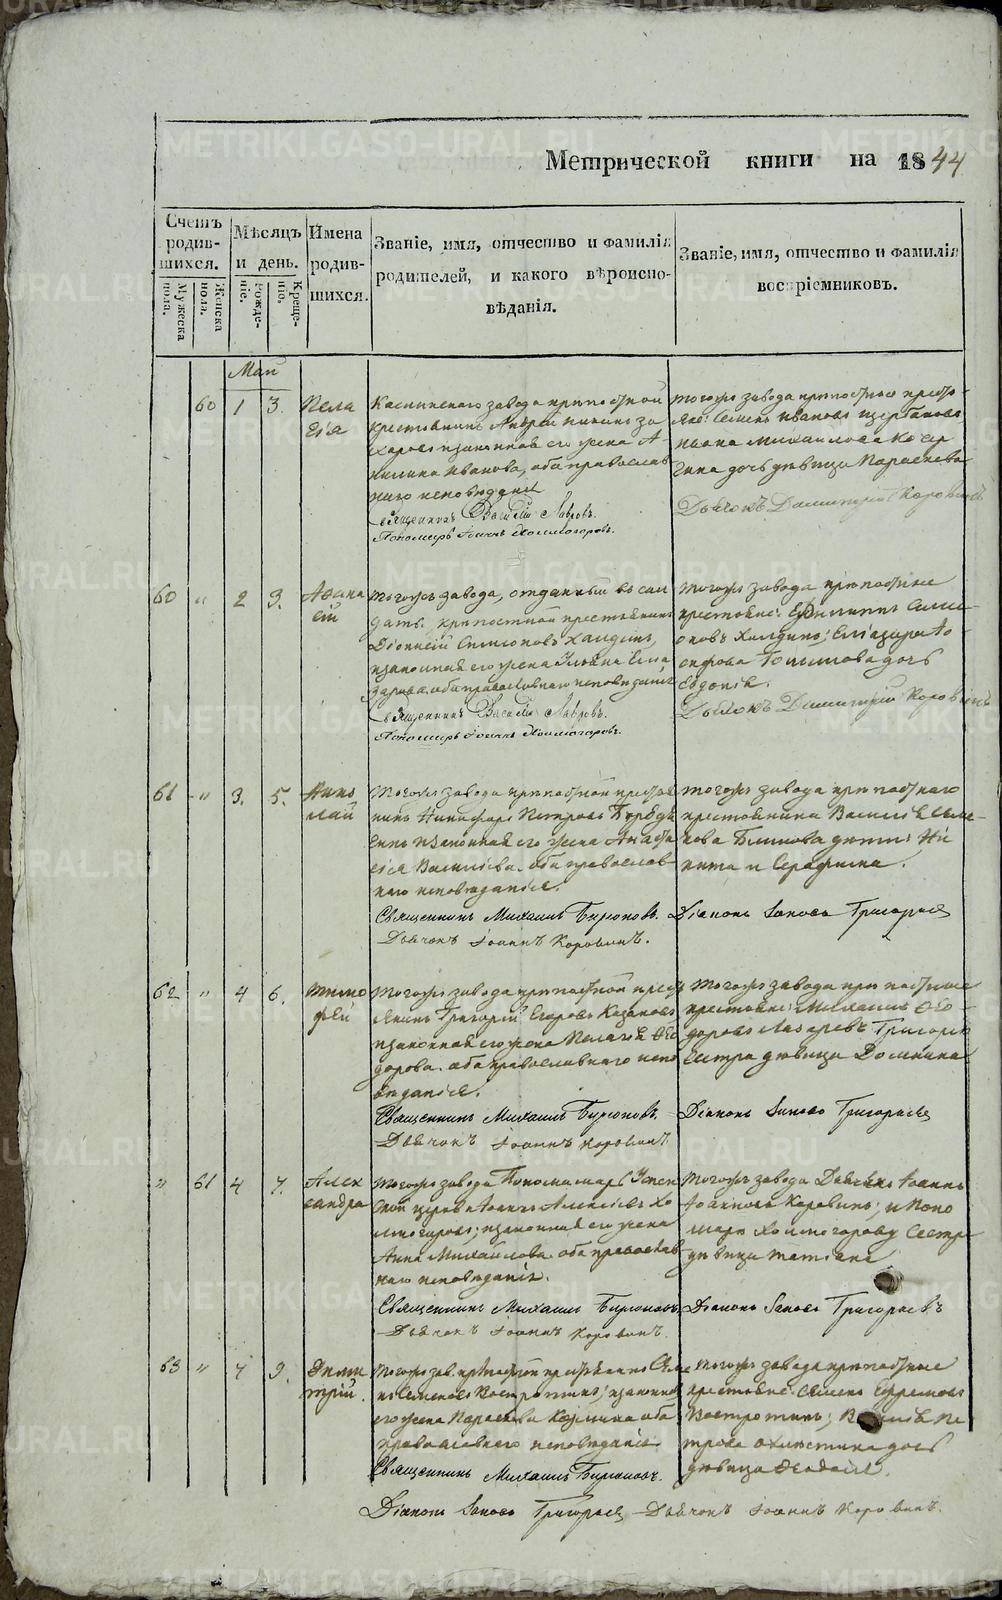 METRIKI.GASO-URAL.RU
Метрической книги на 1844
Счетъ родив-шихся.
Мужеска пола.
Женска пола.
Мѣсяцъ и день.
Рожде-ніе.
Креще-ніе.
Имена родив-шихся.
Званіе, имя, отчество и фамилія
родителей, и какого вѣроиспо-
вѣданія.
Званіе, имя, отчество и фамилія
воспріемниковъ.
Май
60 1 3. Пела
гія
крестьянинъ Андрей
законная его жена А
Иванова, оба православ
наго исповѣданія
Священникъ Василій Лавровъ.
Пономарь Іоаннъ Холмогоровъ.
тогожъ завода крѣпостные
Семенъ Ивановъ
Михайлова
дочь дѣвица Параскева
Дьячокъ Димитрій Коровинъ
60 " 2 3. Афана
сій
тогожъ завода, отданный въ сол
даты крѣпостной крестьянинъ
Діонисій Симеоновъ
законная его жена Ульяна
оба православнаго исповѣданія
Священникъ Василій Лавровъ.
Пономарь Іоаннъ Холмогоровъ.
тогожъ завода крѣпостные
дочь
Евдокія.
Дьячокъ Димитрій Коровинъ
61 " 3. 5. Нико
лай
тогожъ завода крѣпостной крестья
нинъ Никифоръ Петровъ
законная его жена Анаста
сія Васильева. оба православ
наго исповѣданія.
Священникъ Михаилъ Бирюковъ.
Дьячокъ Іоаннъ Коровинъ.
тогожъ завода крѣпостнаго
крестьянина Василія Семе
нова Блинова дѣти: Ни
кита и Серафима.
Діаконъ Іаковъ Григорьевъ
62 " 4 6. Тимо
фей
тогожъ завода крѣпостной кресть
янинъ Григорій Егоровъ Казаковъ
законная его жена Пелагія Ѳео
дорова. оба православнаго испо
вѣданія.
Священникъ Михаилъ Бирюковъ.
Дьячокъ Іоаннъ Коровинъ
тогожъ завода крѣпостные
крестьяне: Михаилъ Ѳео
доровъ Лазаревъ Григорія
сестра дѣвица Домника
Діаконъ Іаковъ Григорьевъ
" 61 4 7. Алек
сандра
тогожъ завода Пономарь Успен
ской церкви Іоаннъ Алексѣевъ Хо
лмогоровъ; законная его жена
Анна Михайлова. оба православ
наго исповѣданія.
Священникъ Михаилъ Бирюковъ
Дьячокъ Іоаннъ Коровинъ.
тогожъ завода Дьячекъ Іоаннъ
Іоанновъ Коровинъ; и Поно
марю Холмогорову сестра
дѣвица Татіана
Діаконъ Іаковъ Григорьевъ
63 " 7 9. Дими
трій.
тогожъ зав. крѣпостной крестьянинъ Семе
нъ Семеновъ Востротинъ; законная
его жена Параскева Козмина оба
православнаго исповѣданія
Священникъ Михаилъ Бирюковъ.
тогожъ завода крѣпостные
крестьяне: Семенъ Ефремовъ
Востротинъ; Василія Пе
трова дочь
дѣвица Ѳеодосія.
Діаконъ Іаковъ Григорьевъ Дьячокъ Іоаннъ Коровинъ.